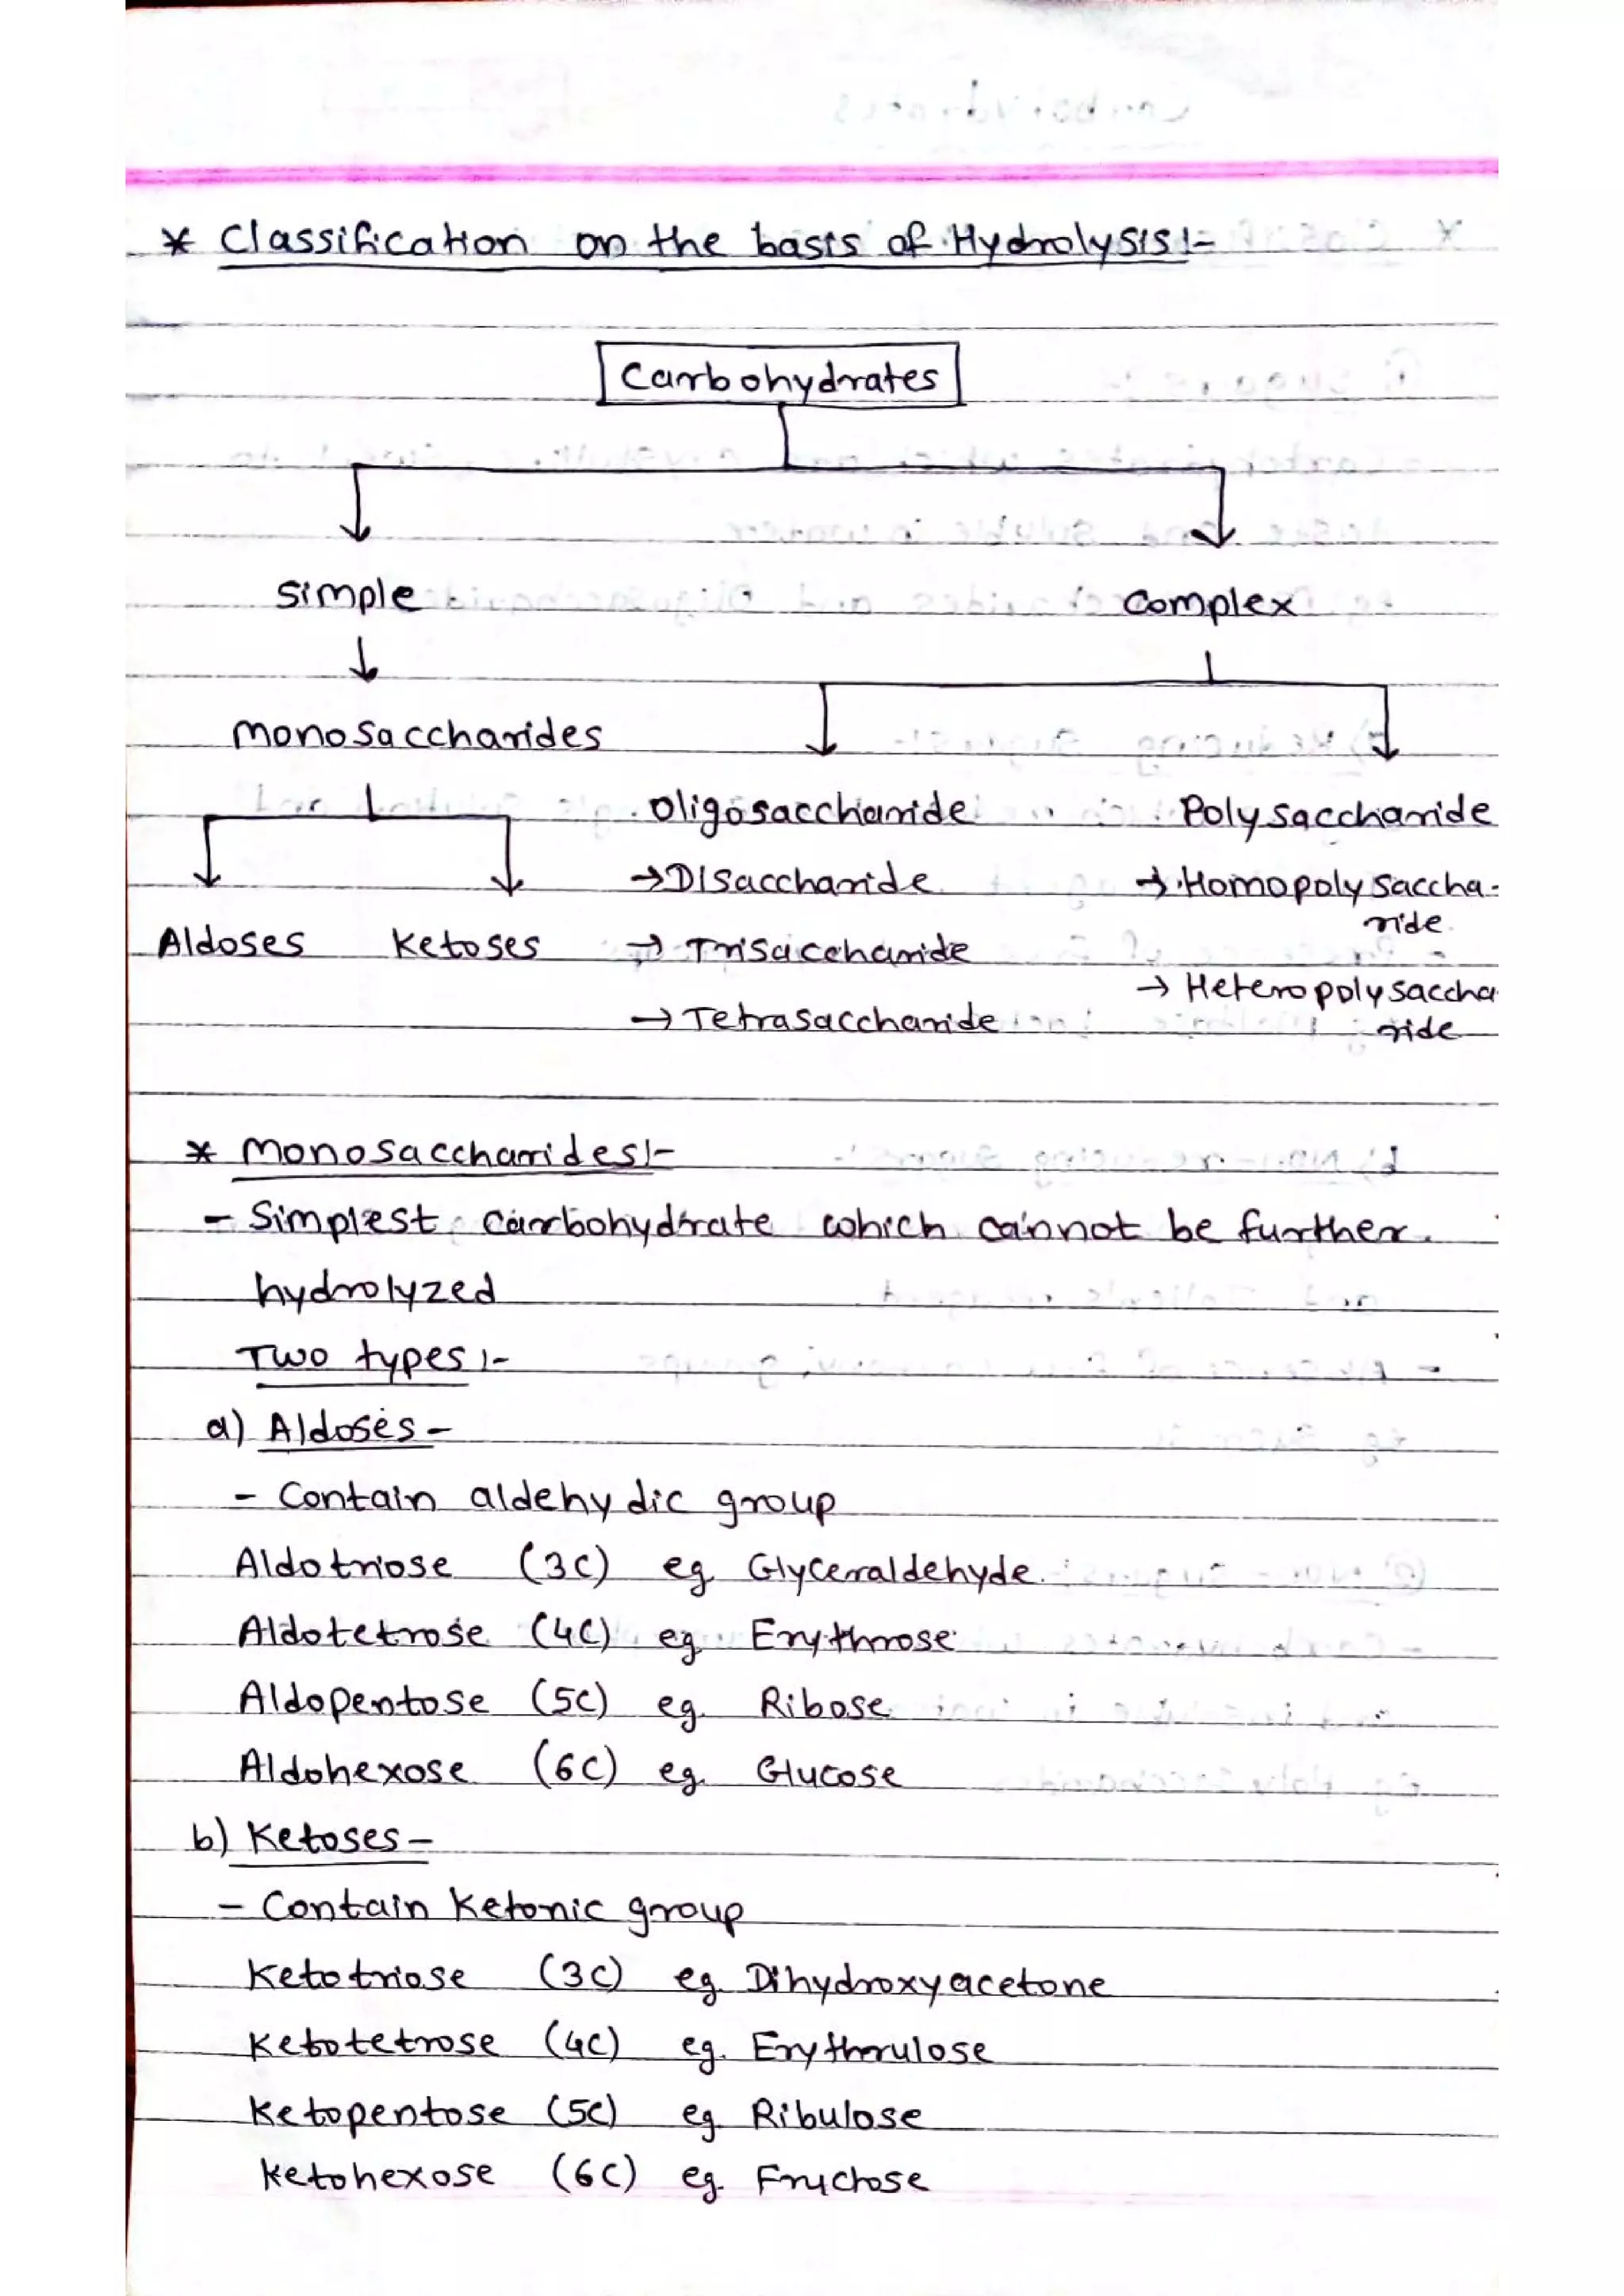 * Classification on the basis of Hydrolysis:-
Carbohydrates
Simple Complex
Monosaccharides
Oligosaccharide Polysaccharide
→Disaccharide → Homopolysaccha-
ride
Aldoses Ketoses → Trisaccharide
→ Heteropolysaccha
ride
→ Tetrasaccharide
* Monosaccharides:-
- Simplest carbohydrate which cannot be further
hydrolyzed
Two types :-
a) Aldoses -
- Contain aldehydic group
Aldotriose (3C) eg Glyceraldehyde
Aldotetrose (4C) eg Erythrose
Aldopentose (5C) eg. Ribose
Aldohexose (6C) eg. Glucose
b) Ketoses -
- Contain Ketonic group
Ketotriose (3C) eg Dihydroxyacetone
Ketotetrose (4C) eg. Erythrulose
Ketopentose (5C) eg Ribulose
Ketohexose (6C) eg. Fructose